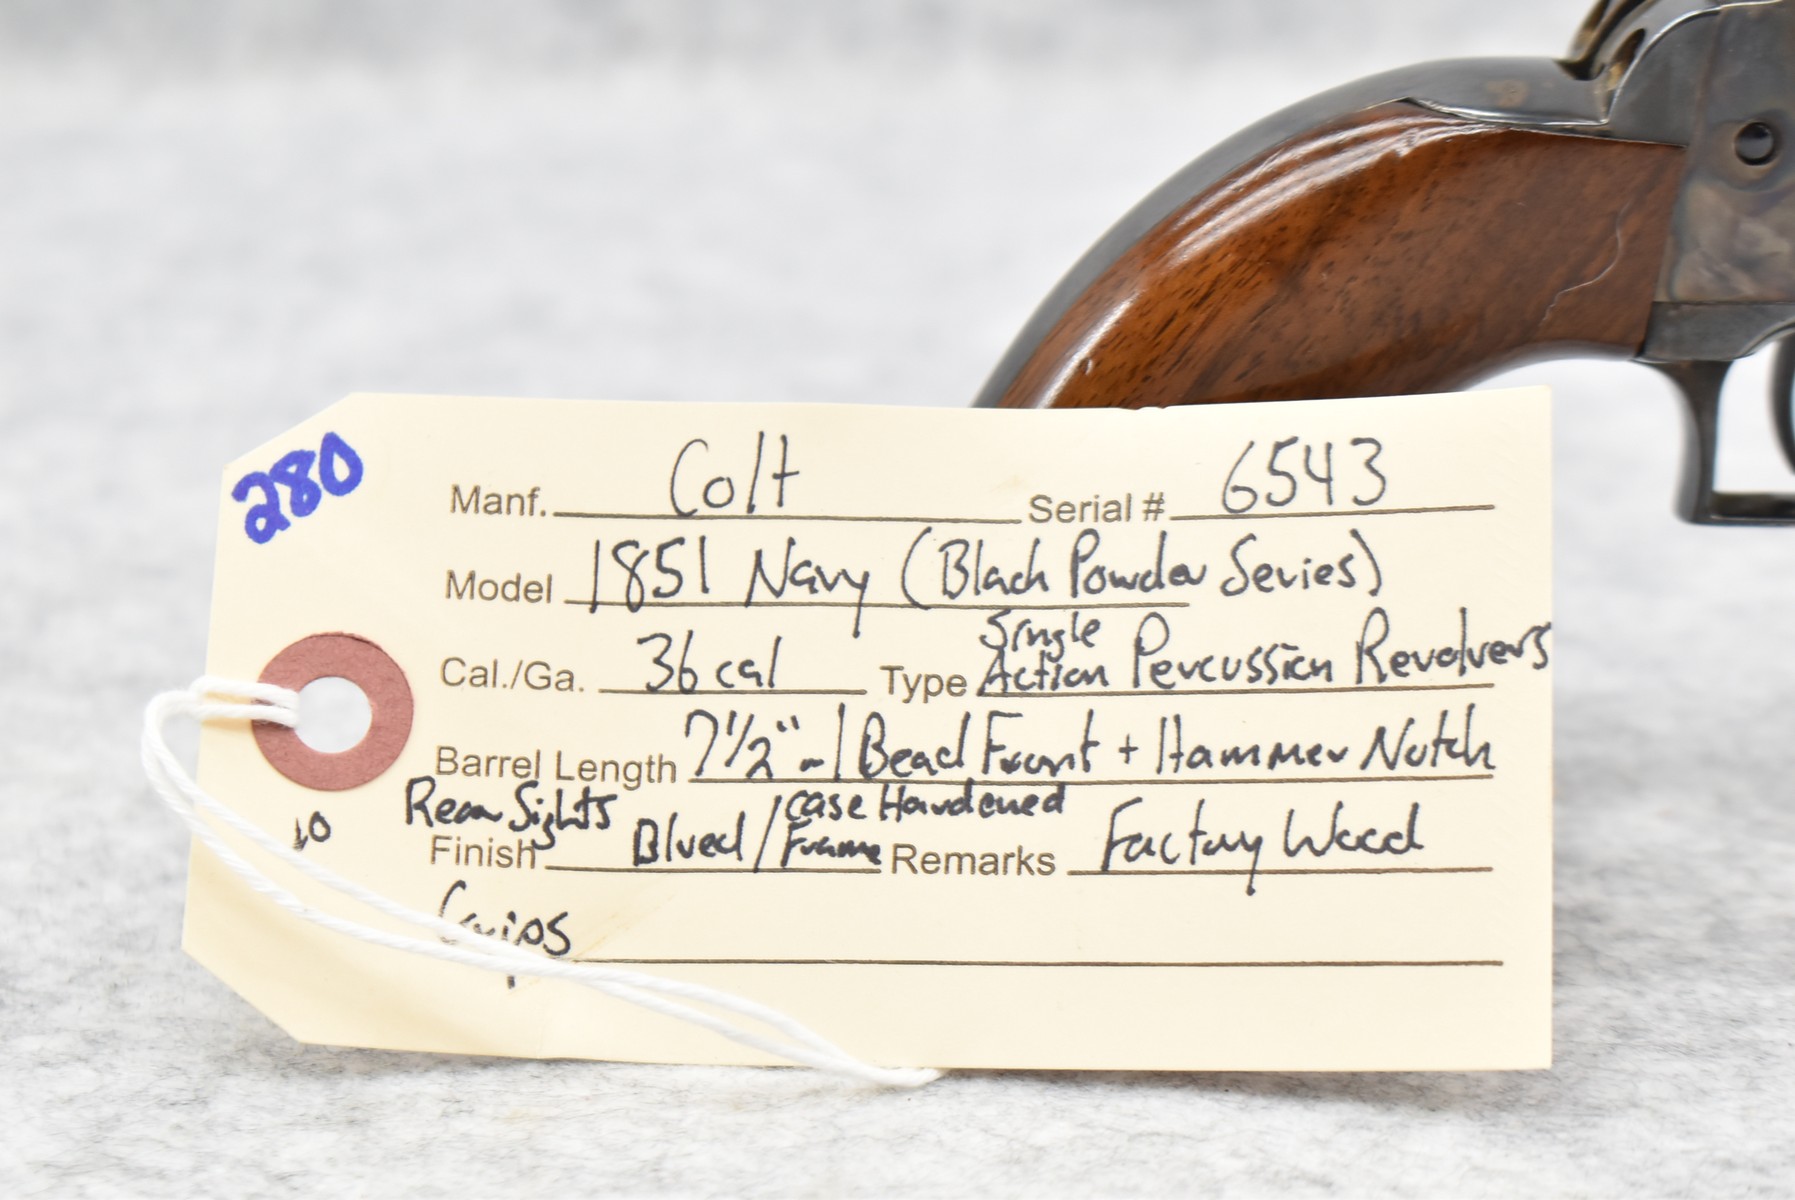 280
Manf. Colt Serial # 6543
Model 1851 Navy (Black Powder Series)
Cal./Ga. 36 cal Type Single Action Percussion Revolvers
Barrel Length 7 1/2" - 1 Bead Front + Hammer Notch
Rear Sights
10
Finish Blued / case Hardened Frame Remarks Factory Wood
Grips